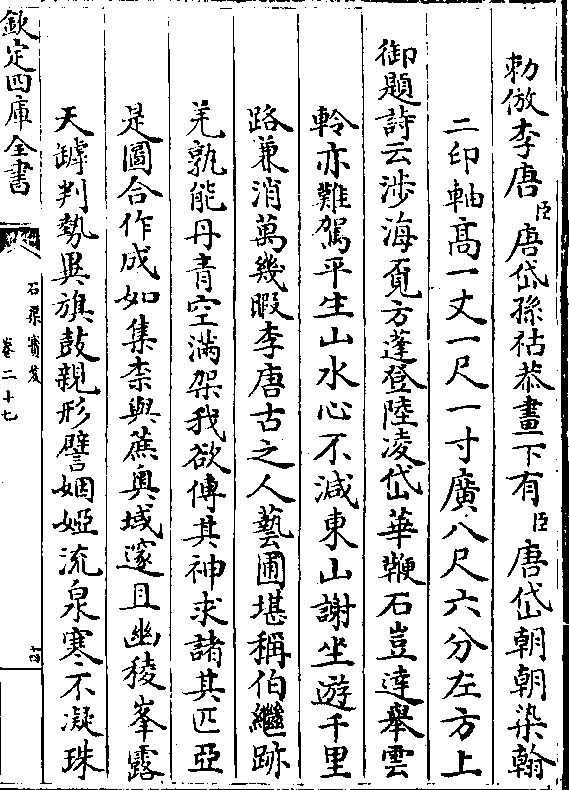 勅倣李唐臣唐岱孫祜恭畫下有臣唐岱朝朝染翰
二印軸髙一丈一尺一寸廣八尺六分左方上
御題詩云渉海覓方蓬登陸凌岱華鞭石豈達舉雲
軨亦難駕平生山水心不減東山謝坐遊千里
路兼消萬幾暇李唐古之人藝圃堪稱伯繼跡
羌孰能丹青空滿架我欲傳其神求諸其匹亞
是圖合作成如集柰與蔗奥域邃且幽稜峯露
天罅判勢異旗鼓親形譬姻婭流泉寒不凝珠
欽定四庫全書
石渠寳笈
卷二十七